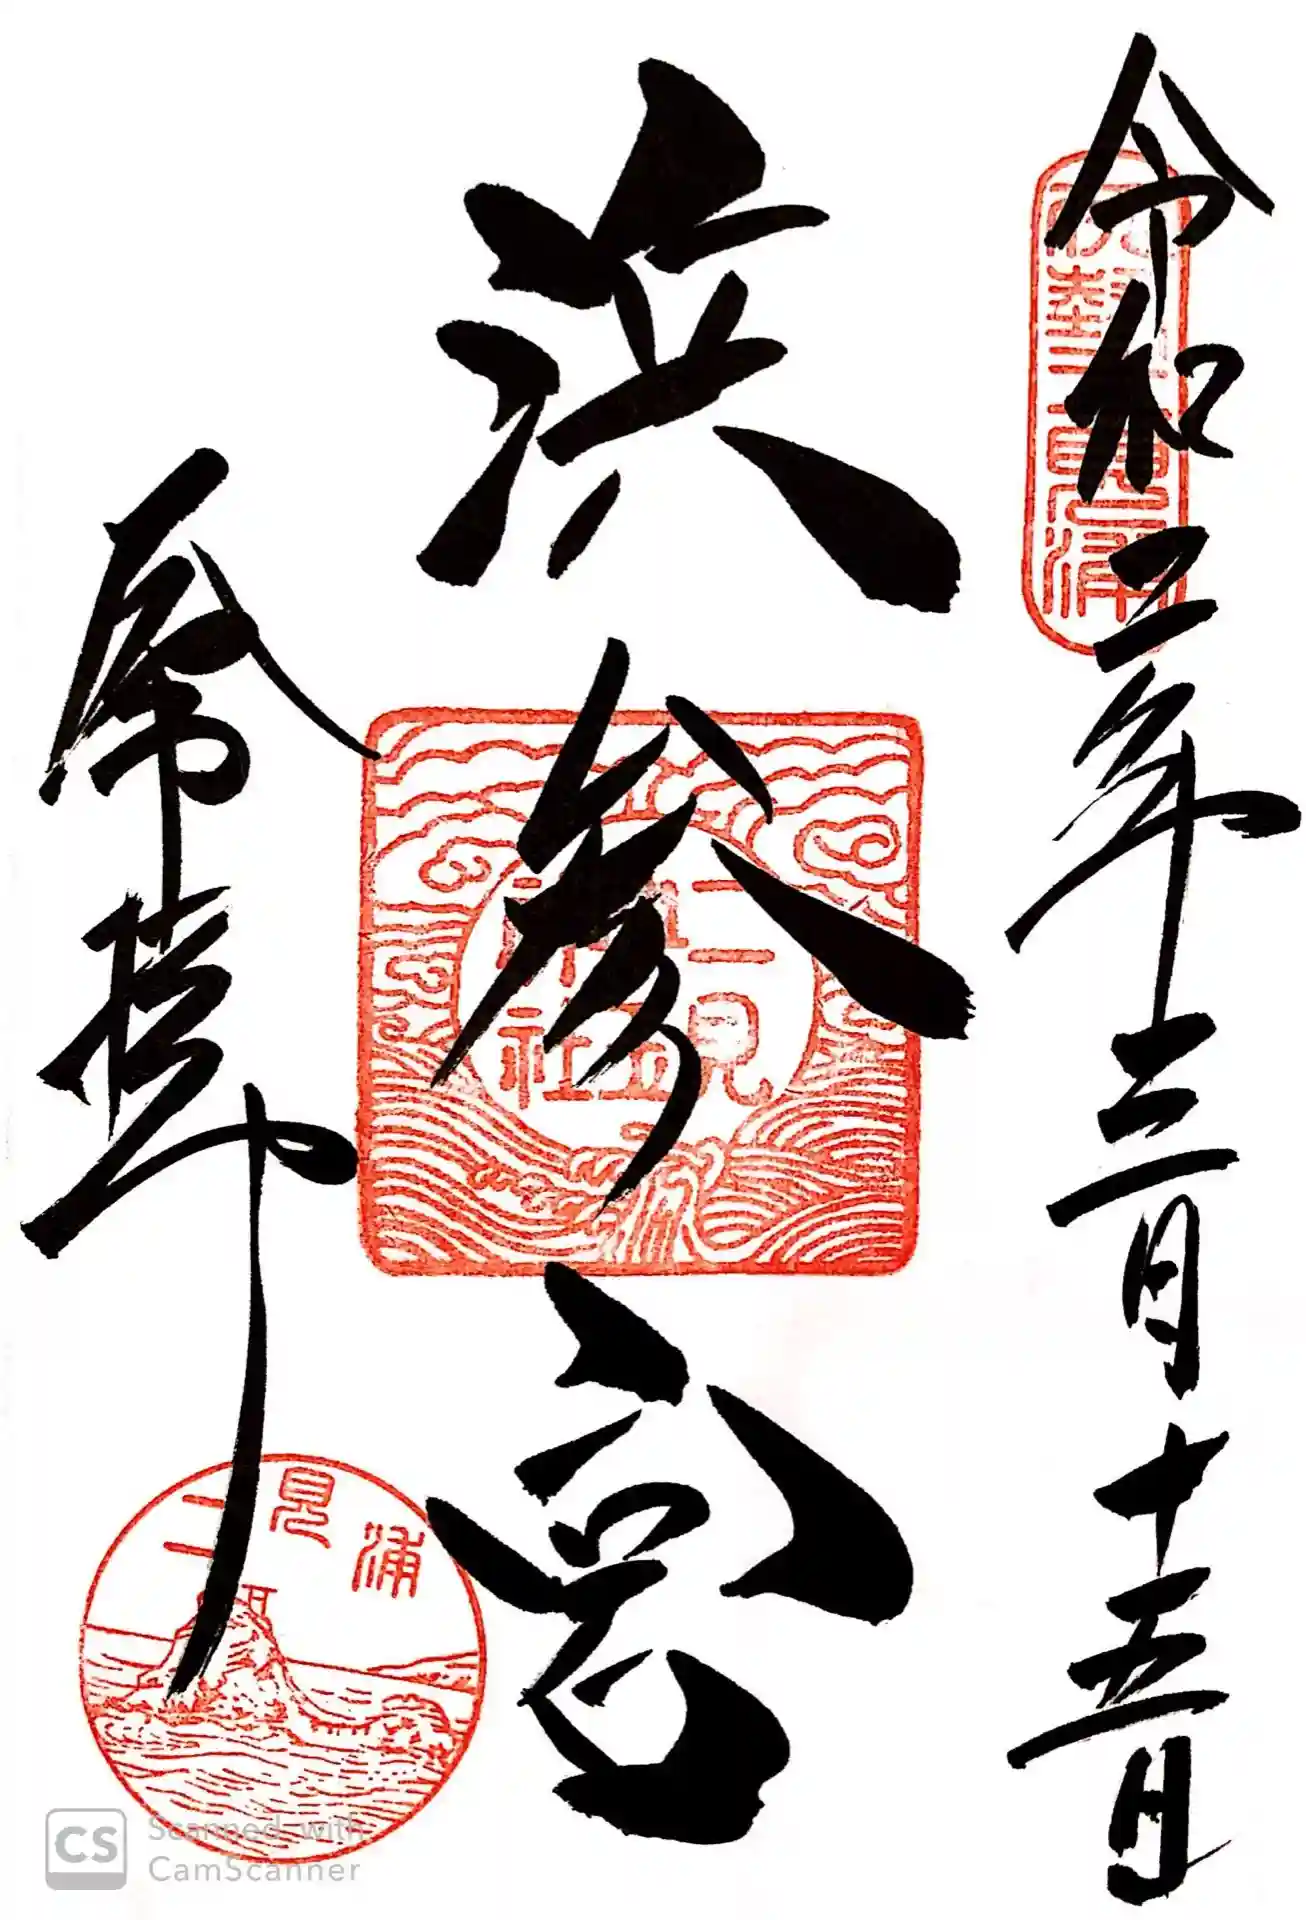 令和二年三月十五日
勢二見浦
浜参宮
二見
玉
神社
二見浦
Scanned with
CS CamScanner